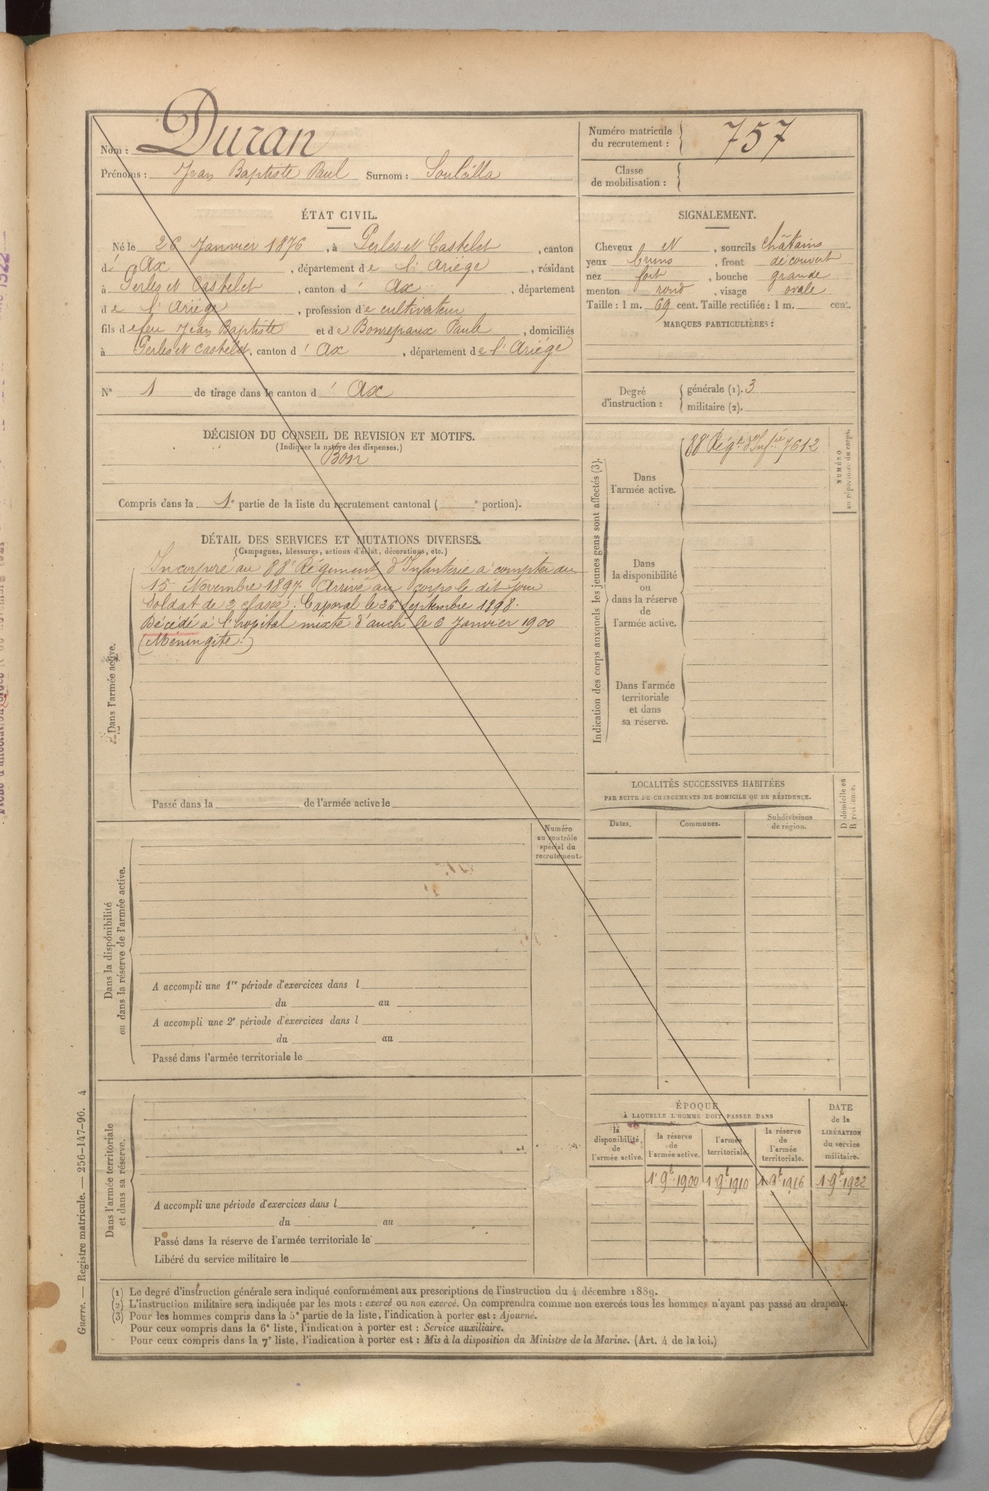 Nom : Duran
Prénoms : Jean Baptiste Paul Surnom : Soulèilla
Numéro matricule du recrutement : 757
Classe de mobilisation :
ÉTAT CIVIL.
Né le 26 Janvier 1876, à Perles et Castelet, canton
d' Ax, département de l'Ariège, résidant
à Perles et Castelet, canton d' Ax, département
de l'Ariège, profession de cultivateur
fils de feu Jean Baptiste et de Bonrepaux Paule, domiciliés
à Perles et Castelet, canton d' Ax, département de l'Ariège
SIGNALEMENT.
Cheveux et, sourcils châtains
yeux bruns, front découvert
nez fort, bouche grande
menton rond, visage ovale
Taille : 1 m. 69 cent. Taille rectifiée : 1 m. cent.
MARQUES PARTICULIÈRES :
N° 1 de tirage dans le canton d' Ax
Degré d'instruction : générale (1). 3
militaire (2).
DÉCISION DU CONSEIL DE REVISION ET MOTIFS.
(Indiquer la nature des dispenses.)
Bon
Compris dans la 1e partie de la liste du recrutement cantonal ( e portion).
DÉTAIL DES SERVICES ET MUTATIONS DIVERSES.
(Campagnes, blessures, actions d'éclat, décorations, etc.)
Dans l'armée active.
Incorporé au 88e Régiment d'Infanterie à compter du
15 Novembre 1897. Arrivé au corps le dit jour
Soldat de 2e classe. Caporal le septembre 1898.
Décédé à l'hôpital mixte d'auch le Janvier 1900
(Méningite.)
Passé dans la de l'armée active le
Indication des corps auxquels les jeunes gens sont affectés (3).
Dans l'armée active.
88 Régt d'Infie 7612
NUMÉRO au répertoire du corps.
Dans la disponibilité ou dans la réserve de l'armée active.
Dans l'armée territoriale et dans sa réserve.
LOCALITÉS SUCCESSIVES HABITÉES
PAR SUITE DE CHANGEMENTS DE DOMICILE OU DE RÉSIDENCE.
Dates. Communes. Subdivisions de région.
D domicile ou R résidence.
Numéro au contrôle spécial du recrutement.
Dans la disponibilité ou dans la réserve de l'armée active.
A accompli une 1re période d'exercices dans l
du au
A accompli une 2e période d'exercices dans l
du au
Passé dans l'armée territoriale le
Dans l'armée territoriale et dans sa réserve.
A accompli une période d'exercices dans l
du au
Passé dans la réserve de l'armée territoriale le
Libéré du service militaire le
ÉPOQUE
À LAQUELLE L'HOMME DOIT PASSER DANS
la disponibilité de l'armée active.
la réserve de l'armée active.
l'armée territoriale.
la réserve de l'armée territoriale.
DATE de la LIBÉRATION du service militaire.
1er 9bre 1900 1er 9bre 1910 1er 9bre 1916 1er 9bre 1922
(1) Le degré d'instruction générale sera indiqué conformément aux prescriptions de l'instruction du 4 décembre 1889.
(2) L'instruction militaire sera indiquée par les mots : exercé ou non exercé. On comprendra comme non exercés tous les hommes n'ayant pas passé au drapeau.
(3) Pour les hommes compris dans la 5e partie de la liste, l'indication à porter est : Ajourné.
Pour ceux compris dans la 6e liste, l'indication à porter est : Service auxiliaire.
Pour ceux compris dans la 7e liste, l'indication à porter est : Mis à la disposition du Ministre de la Marine. (Art. 4 de la loi.)
Guerre. — Registre matricule. — 256-147-96. 4